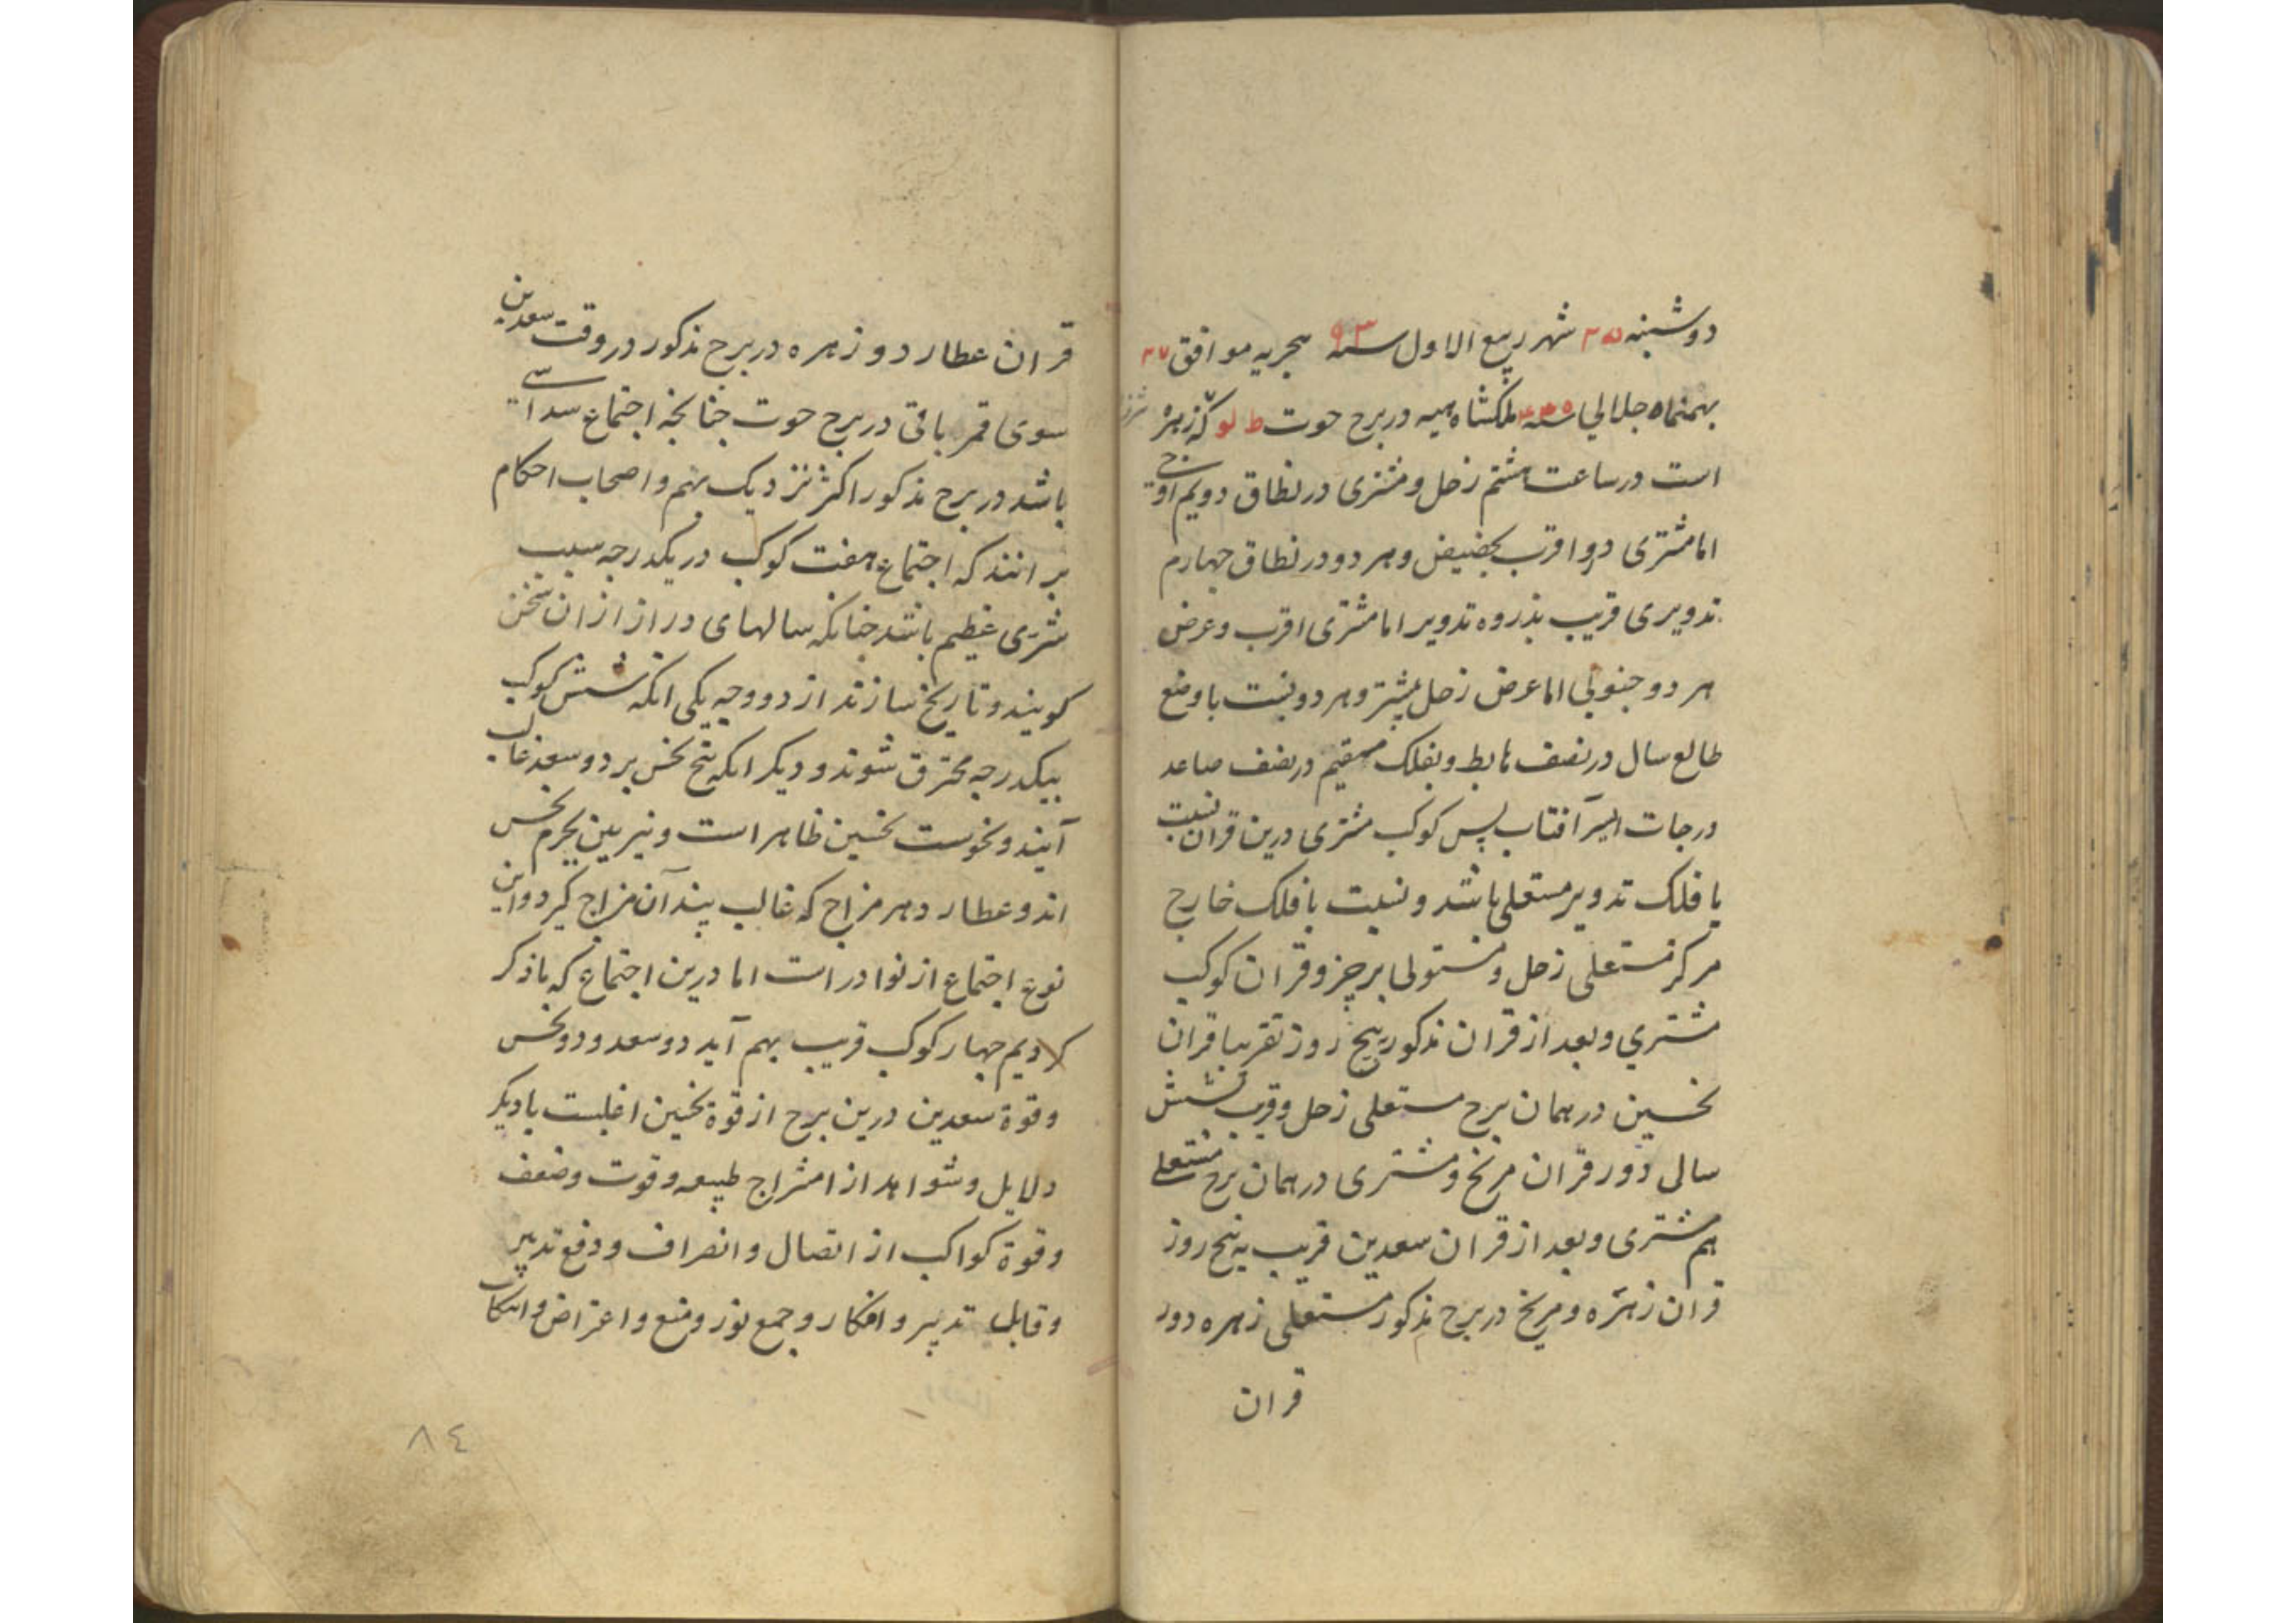 دوشنبه ۲۵ شهر ربیع الاول سنه ۹۳ هجریه موافق ۲۷
بهمنماه جلالی سنه ملکشاهیه در برج حوت ط لو که زهره
است در ساعت هشتم زحل و مشتری در نطاق دویم اوجی
اما مشتری دو اقرب بحضیض و هر دو در نطاق چهارم
تدویری قریب بذروه تدویر اما مشتری اقرب و عرض
هر دو جنوبی اما عرض زحل بیشتر و هر دو نسبت باوضع
طالع سال در نصف هابط و بفلک مستقیم در نصف صاعد
درجات ایسر آفتاب پس کوکب مشتری درین قران نسبت
با فلک تدویر مستعلی باشد و نسبت با فلک خارج
مرکز مستعلی زحل و مستولی بر جز و قران کوکب
مشتری و بعد از قران مذکور پنج روز تقریبا قران
نحسین در همان برج مستعلی زحل و قریب شش
سالی دور قران مریخ و مشتری در همان برج مستعلی
هم مشتری و بعد از قران سعدین قریب به پنج روز
قران زهره و مریخ در برج مذکور مستعلی زهره دور
قران
قران عطارد و زهره در برج مذکور در وقت سعدین
سوی قمر باقی در برج حوت چنانچه اجتماع سداسی
باشد در برج مذکور اکثر نزدیک بهم و اصحاب احکام
برانند که اجتماع هفت کوکب در یکدرجه سبب
شری عظیم باشد چنانکه سالهای دراز از ان سخن
کویند و تاریخ سازند از دو وجه یکی انکه شش کوکب
بیکدرجه محترق شوند و دیکر انکه پنج نحس بر دو سعد غالب
آیند و نحوست نحسین ظاهر است و نیرین بجرم نحس
اند و عطارد هر مزاج که غالب بیند آن مزاج کیرد و این
نوع اجتماع از نوادر است اما درین اجتماع که یاد کر
کردیم چهار کوکب قریب بهم آید دو سعد و دو نحس
و قوة سعدین درین برج از قوة نحسین اغلبست با دیکر
دلایل و شواهد از امتزاج طبیعه و قوت و ضعف
و قوة کواکب از اتصال و انصراف و دفع تدبیر
و قابل تدبیر و انکار و جمع نور و منع و اعتراض و انتکاث
۸٤